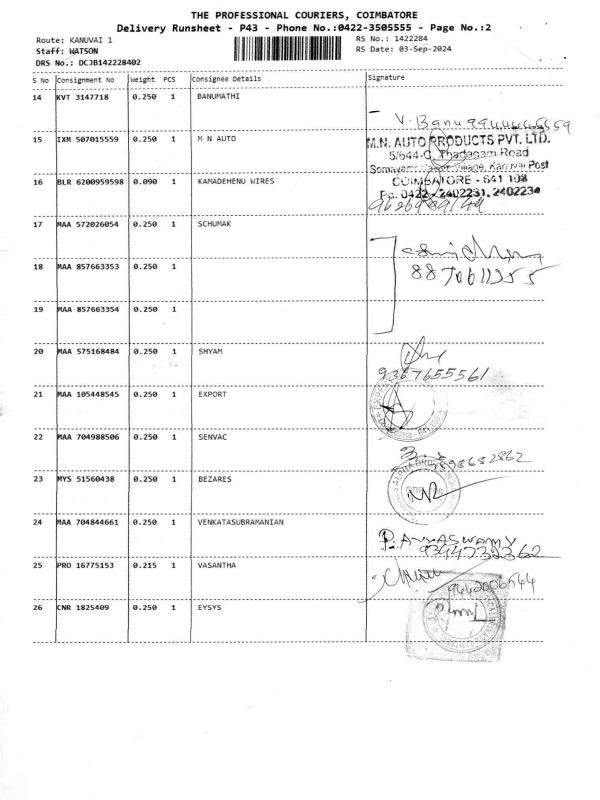 THE PROFESSIONAL COURIERS, COIMBATORE
Delivery Runsheet - P43 - Phone No.:0422-3505555 - Page No.:2
Route: KANUVAI 1
RS No.: 1422284
Staff: WATSON
RS Date: 03-Sep-2024
DRS No.: DCJB142228402
S No Consignment No Weight PCS Consignee Details Signature
14 KVT 3147718 0.250 1 BANUMATHI
V. Banu
15 IXM 507015559 0.250 1 M N AUTO
M.N. AUTO PRODUCTS PVT. LTD.
5/644-C, Thadagam Road
Somayampalayam Village, Kanuvai Post
16 BLR 6200959598 0.090 1 KAMADEHENU WIRES
COIMBATORE - 641 108
Ph. 0422 - 2402231, 2402234
17 MAA 572026054 0.250 1 SCHUMAK
8870611255
18 MAA 857663353 0.250 1
19 MAA 857663354 0.250 1
20 MAA 575168484 0.250 1 SHYAM
9367655561
21 MAA 105448545 0.250 1 EXPORT
22 MAA 704988506 0.250 1 SENVAC
23 MYS 51560438 0.250 1 BEZARES
24 MAA 704844661 0.250 1 VENKATASUBRAMANIAN
9344732362
25 PRO 16775153 0.215 1 VASANTHA
9442006544
26 CNR 1825409 0.250 1 EYSYS